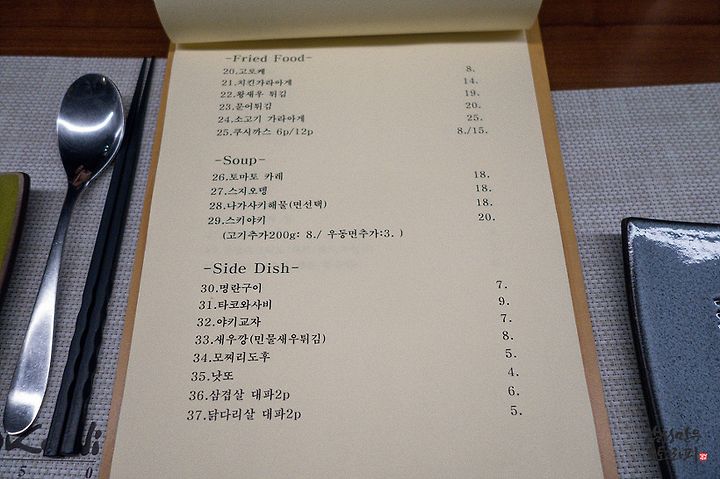 -Fried Food-
20.고로케 8.
21.치킨가라아게 14.
22.왕새우 튀김 19.
23.문어튀김 20.
24.소고기 가라아게 25.
25.쿠시까스 6p/12p 8./15.
-Soup-
26.토마토 카레 18.
27.스지오뎅 18.
28.나가사키해물(면선택) 18.
29.스키야키 20.
(고기추가200g: 8./ 우동면추가:3. )
-Side Dish-
30.명란구이 7.
31.타코와사비 9.
32.야키교자 7.
33.새우깡(민물새우튀김) 8.
34.모찌리도후 5.
35.낫또 4.
36.삼겹살 대파2p 6.
37.닭다리살 대파2p 5.
5 0